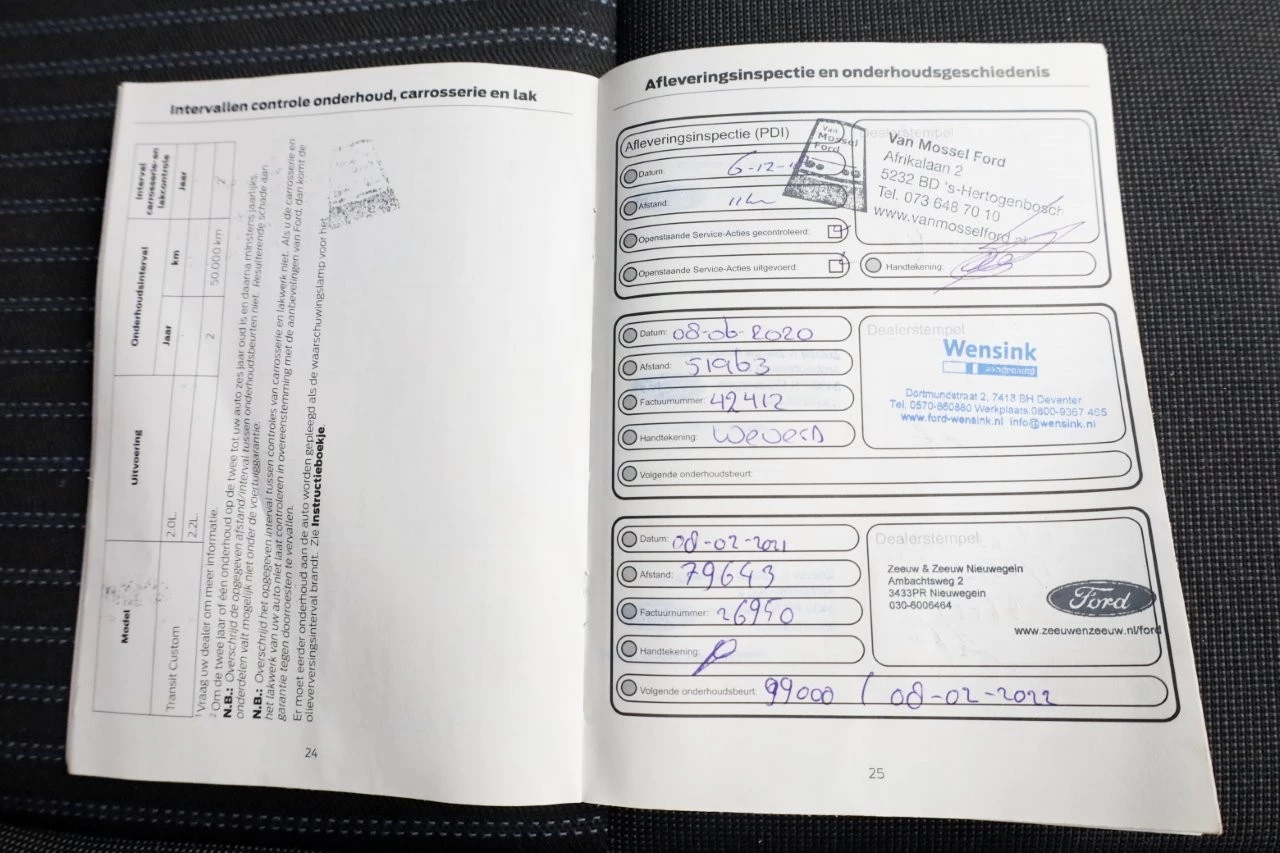 Intervallen controle onderhoud, carrosserie en lak
Model
Uitvoering
Onderhoudsinterval
Interval carrosserie- en lakcontrole
Jaar
km
Jaar
Transit Custom
2.0L
2.2L
2
50.000 km
2
1 Vraag uw dealer om meer informatie.
2 Om de twee jaar of één onderhoud op de twee tot uw auto zes jaar oud is en daarna minstens jaarlijks.
N.B.: Overschrijd de opgegeven afstand/interval tussen onderhoudsbeurten niet. Resulterende schade aan
onderdelen valt mogelijk niet onder de voertuiggarantie.
N.B.: Overschrijd het opgegeven interval tussen controles van carrosserie en lakwerk niet. Als u de carrosserie en
het lakwerk van uw auto niet laat controleren in overeenstemming met de aanbevelingen van Ford, dan komt de
garantie tegen doorroesten te vervallen.
Er moet eerder onderhoud aan de auto worden gepleegd als de waarschuwingslamp voor het
olieverversingsinterval brandt. Zie Instructieboekje.
24
Afleveringsinspectie en onderhoudsgeschiedenis
Afleveringsinspectie (PDI)
Datum: 6-12-
Afstand:
Openstaande Service-Acties gecontroleerd:
Openstaande Service-Acties uitgevoerd:
Van
Mossel
Ford
Dealerstempel
Van Mossel Ford
Afrikalaan 2
5232 BD 's-Hertogenbosch
Tel. 073 648 70 10
www.vanmosselford.nl
Handtekening:
Datum: 08-06-2020
Afstand: 51963
Factuurnummer: 42412
Handtekening:
Volgende onderhoudsbeurt:
Dealerstempel
Wensink
Dortmundstraat 2, 7418 BH Deventer
Tel. 0570-860880 Werkplaats:0800-9367 465
www.ford-wensink.nl info@wensink.nl
Datum: 08-02-2021
Afstand: 79643
Factuurnummer: 26950
Handtekening:
Volgende onderhoudsbeurt: 99000 / 08-02-2022
Dealerstempel
Zeeuw & Zeeuw Nieuwegein
Ambachtsweg 2
3433PR Nieuwegein
030-6006464
Ford
www.zeeuwenzeeuw.nl/ford
25